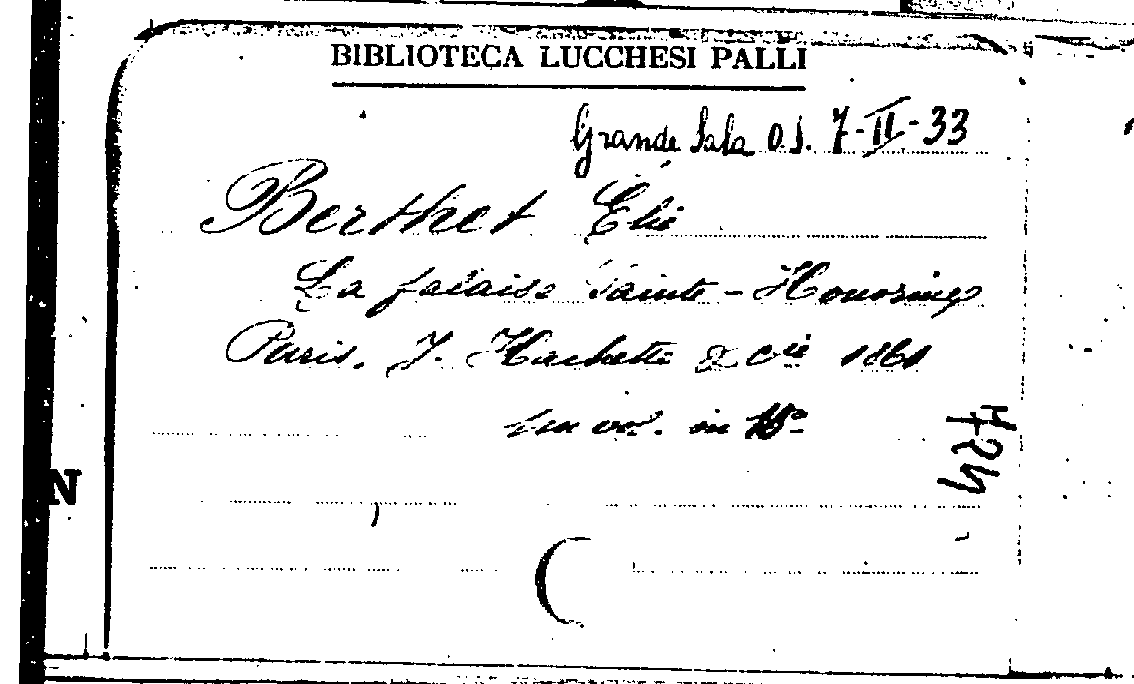 BIBLIOTECA LUCCHESI PALLI
Grande Sala O.S. 7-II-33
Berthet Elie
La falaise Sainte-Honorine
Paris. J. Hachette & cie 1861
un vol. in
N